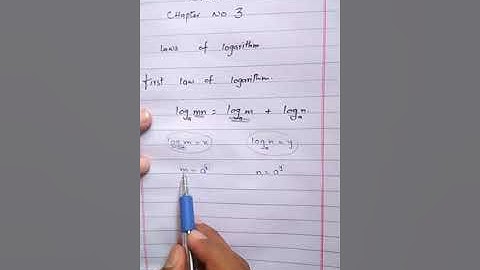 Chapter No 3
Laws of logarithm
First law of logarithm.
logₐ mn = logₐ m + logₐ n.
logₐ m = x logₐ n = y
m = aˣ n = aʸ